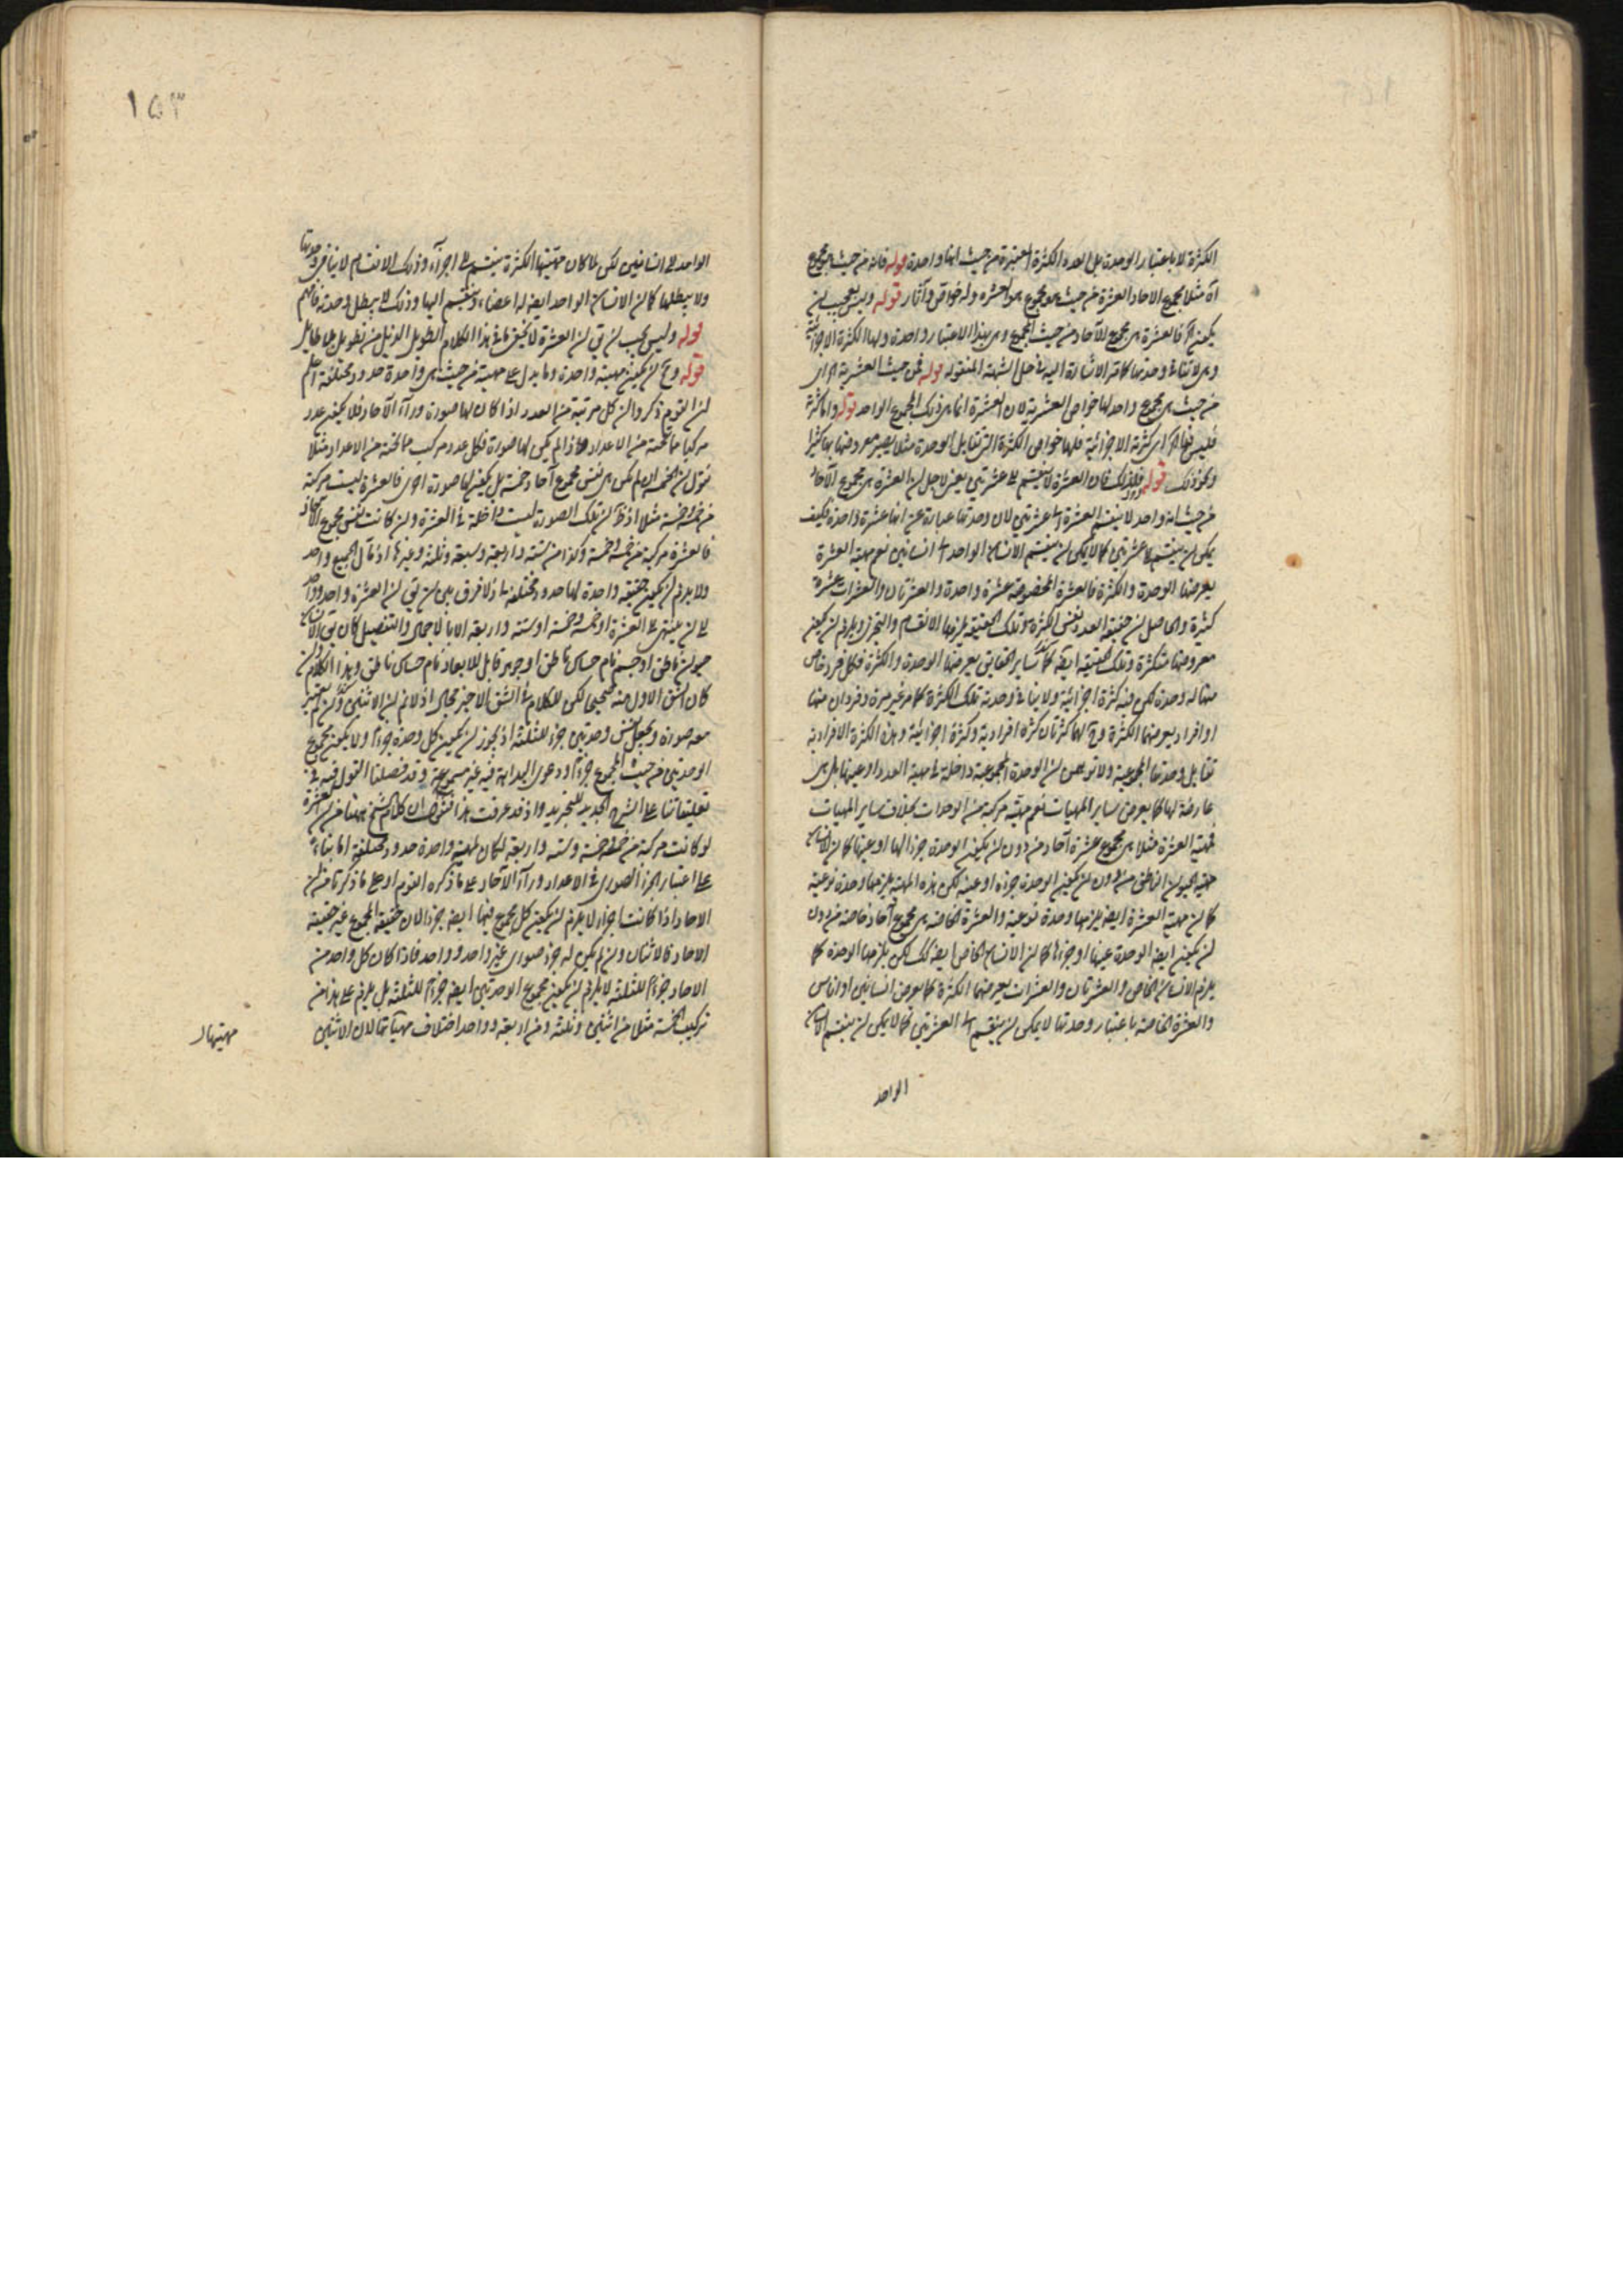 الكثرة لا باعتبار الوحدة بل العدد الكثرة المعتبرة من حيث انها واحدة قوله فانه من حيث هو مجموع
آه مثلا مجموع الاحاد العشرة من حيث هو مجموع هو العشرة وله خواص وآثار قوله وليس بعجيب ان
يكون آه فالعشرة هى مجموع الآحاد من حيث المجموع وهى بهذا الاعتبار واحدة ولها الكثرة الاجزائية
وهى لا تنافى وحدتها كما مر الاشارة اليه فى حل الشبهة المنقولة قوله فمن حيث العشرية اى
من حيث هى مجموع واحد لها خواص العشرية لان العشرة انما هى ذلك المجموع الواحد قوله واما كثرته
فليس فيها اى كثرته الاجزائية فلها خواص الكثرة التى تقابل الوحدة مثلا يصير معروضها بها كثيرا
ونحو ذلك قوله فلذلك فان العشرة لا ينقسم الى عشرتين يعنى لاجل ان العشرة هى مجموع الآحاد
من حيث انه واحد لا ينقسم العشرة الى عشرتين لان وحدتها عبارة عن انها عشرة واحدة فكيف
يمكن ان ينقسم الى عشرتين كما لا يمكن ان ينقسم الانسان الواحد الى انسانين نعم مهية العشرة
يعرضها الوحدة والكثرة فالعشرة المخصوصة عشرة واحدة والعشرتان والعشرات عشرة
كثيرة والحاصل ان حقيقة العدد نفس الكثرة وتلك الحقيقة يلزمها الانقسام والتجزى ويلزم ان يكون
معروضها متكثرة وتلك الحقيقة ايضا كساير الحقايق يعرضها الوحدة والكثرة فكل فرد خاص
منها له وحدة لكن فيه كثرة اجزائية ولا ينافى وحدته تلك الكثرة كما مر غير مرة وفردان منها
او افراد يعرضها الكثرة وح لها كثرتان كثرة افرادية وكثرة اجزائية وهذه الكثرة الافرادية
تقابل وحدتها المجموعية ولا توهمن ان الوحدة المجموعية داخلة فى مهية العدد او عينها بل هى
عارضة لها كما يعرض ساير المهيات نعم مهيته مركبة من الوحدات بخلاف ساير المهيات
فمهية العشرة مثلا هى مجموع عشرة آحاد من دون ان يكون الوحدة جزءا لها او عينها كما ان الانسان
مهية الحيوان الناطق من دون ان يكون الوحدة جزءه او عينه لكن هذه المهية يلزمها وحدة نوعية
كما ان مهية العشرة ايضا يلزمها وحدة نوعية والعشرة الخاصة هى مجموع آحاد خاصة من دون
ان يكون ايضا الوحدة عينها او جزءها كما ان الانسان الخاص ايضا كذلك لكن يلزمها الوحدة كما
يلزم الانسان الخاص والعشرتان والعشرات يعرضها الكثرة كما يعرض انسانين او اناس
والعشرة الخاصة باعتبار وحدتها لا يمكن ان ينقسم الى العشرتين كما لا يمكن ان ينقسم الانسان
الواحد
١٥٣
الواحد الى انسانين لكن لما كان مهيتها الكثرة ينقسم الى اجزاء وذلك الانقسام لا ينافى وحدتها
ولا يبطلها كما ان الانسان الواحد ايضا له اعضاء وينقسم اليها وذلك لا يبطل وحدته فافهم
قوله وليس يجب ان يق ان العشرة لا يخفى ما فى هذا الكلام الطويل الذيل من تطويل بلا طايل
قوله وح ان يكون مهية واحدة وما يدل على مهية من حيث هى واحدة حدود مختلفة اعلم
ان القوم ذكروا ان كل مرتبة من العدد اذا كان لها صورة وراء الآحاد فلا يكون عدد
مركبا مما تحته من الاعداد واذا لم يكن لها صورة فكل عدد مركب مما تحته من الاعداد مثلا
نقول ان الخمسة ان لم يكن هى نفس مجموع آحاد خمسة بل يكون لها صورة اخرى فالعشرة ليست مركبة
من خمسة وخمسة مثلا اذ ظ ان تلك الصورة ليست داخلة فى العشرة وان كانت نفس مجموع الآحاد
فالعشرة مركبة من خمسة وخمسة وكذا من ستة واربعة وسبعة وثلثة وغيرها اذ مآل الجميع واحد
ولا يلزم ان يكون حقيقة واحدة لها حدود مختلفة اذ لا فرق بين ان يق ان العشرة واحد وواحد
الى ان ينتهى الى العشرة او خمسة وخمسة او ستة واربعة الا بالاجمال والتفصيل كان يق الانسان
حيوان ناطق او جسم نام حساس ناطق او جوهر قابل للابعاد نام حساس ناطق وهذا الكلام وان
كان الشق الاول منه صحيحا لكن للكلام فى الشق الاخير مجال اذ لا نم ان الاثنين وان لم يعتبر
معه صورة ويجعل نفس وحدتين جزء للثلثة اذ يجوز ان يكون كل وحدة جزءا ولا يكون مجموع
الوحدتين من حيث المجموع جزءا ودعوى البداهة فيه غير مسموعة وقد فصلنا القول فيه فى
تعليقاتنا على الشرح الجديد للتجريد واذ قد عرفت هذا فنقول ان كلام الشيخ هيهنا من ان العشرة
لو كانت مركبة من خمسة وخمسة وستة واربعة لكان لمهية واحدة حدود مختلفة اما بناء
على اعتبار الجزء الصورى فى الاعداد وراء الآحاد على ما ذكره القوم او على ما ذكرنا من ان
الاحاد اذا كانت اجزاء لا يلزم ان يكون كل مجموع فيها ايضا جزءا لان حقيقة المجموع غير حقيقة
الاحاد فالاثنان وان لم يكن له جزء صورى غير واحد وواحد فاذا كان كل واحد من
الاحاد جزءا للثلثة لا يلزم ان يكون مجموع الوحدتين ايضا جزءا للثلثة بل يلزم على هذا من
تركيب الخمسة مثلا من اثنين وثلثة ومن اربعة وواحد اختلاف مهياتها لان الاثنين
مهيتها